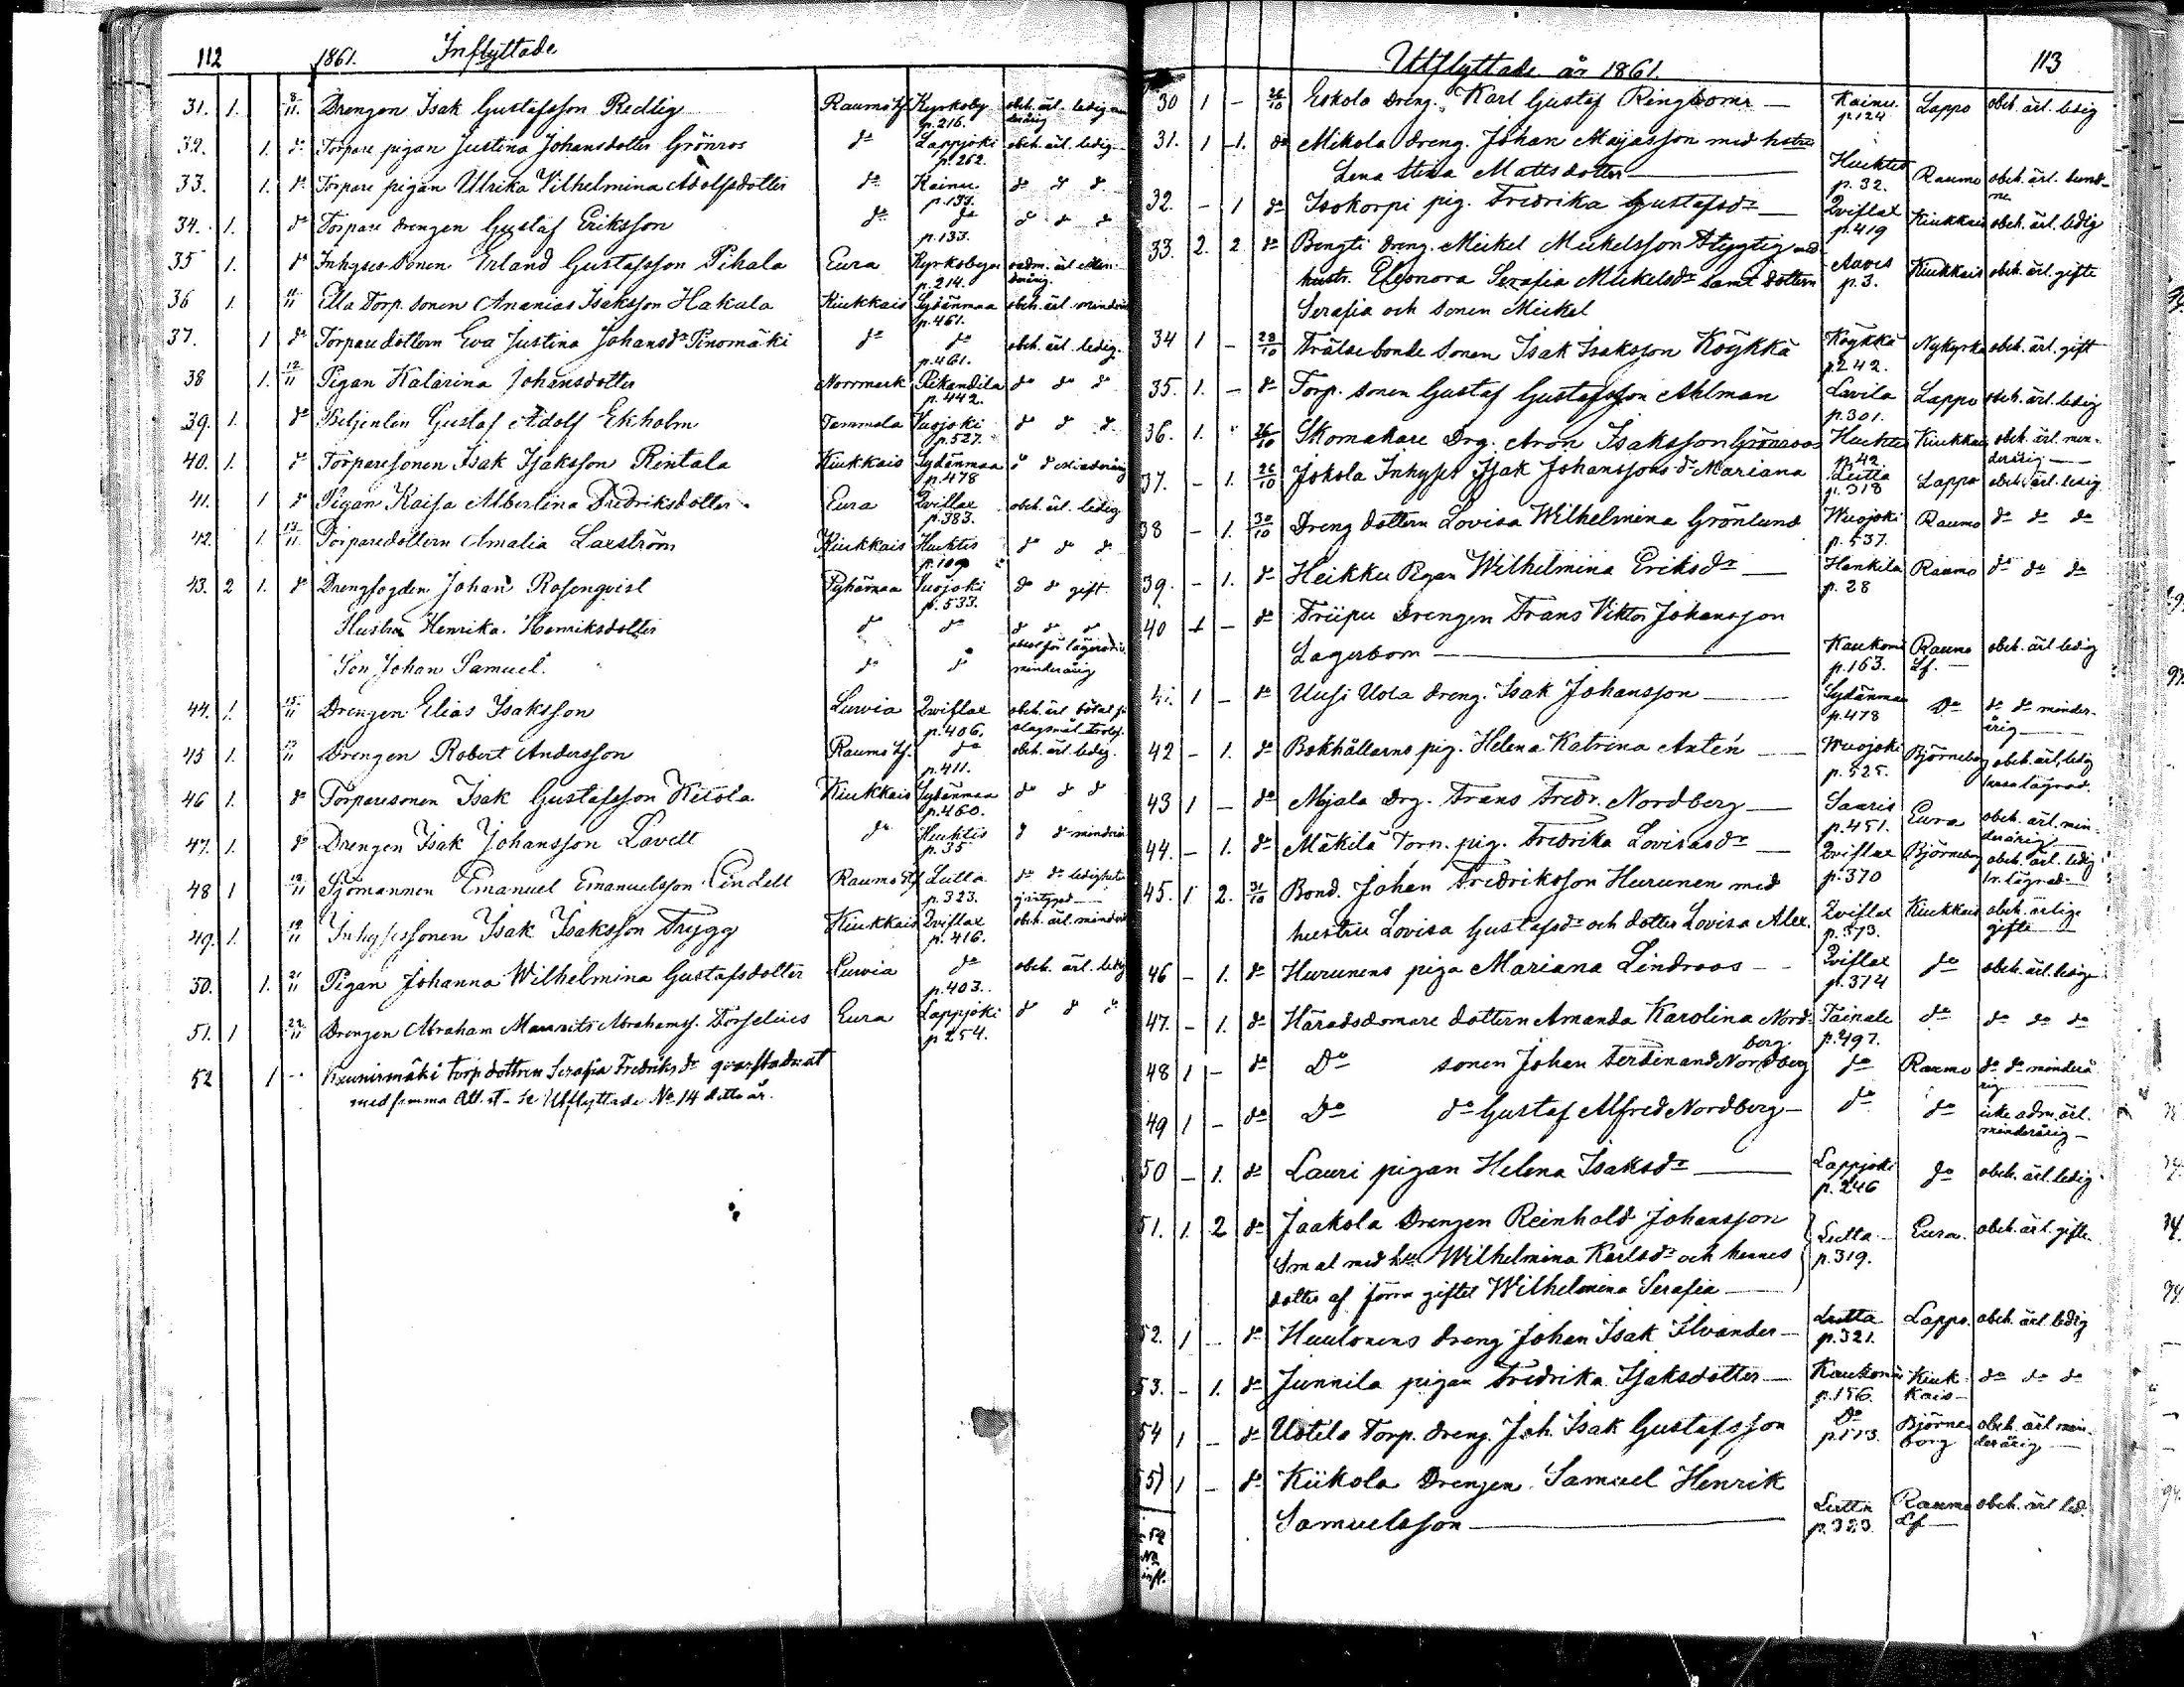 112 1861. Inflyttade
31. 1. 8/11. Drengen Isak Gustafsson Redlig Raumo lf. Kyrkoby p.216. obeh. ärl. ledig
32. 1. do Torpare pigan Justina Johansdotter Grönros do Lappjoki p.262. obeh. ärl. ledig
33. 1. do Torpare pigan Ulrika Vilhelmina Adolfsdotter do Kainu p.137. do do do
34. 1. do Torpare drengen Gustaf Eriksson do do p.133. do do do
35 1. do Inhyses sonen Erland Gustafsson Pihala Eura Kyrkobyn p.214. oadm. ärl. min-
36 1. 11/11 Ella Torp. sonen Ananias Isaksson Hakala Kiukkais Sydänmaa p.461. obeh. ärl. minder
37. 1 do Torpare dottern Eva Justina Johansdr Pinomäki do do p.461. obeh. ärl. ledig.
38 1. 12/11 Pigan Katarina Johansdotter Norrmark Pikandila p.442. do do do
39. 1. do Betjenten Gustaf Adolf Ekholm Tammela Vuojoki p.527. do do do
40. 1. do Torparesonen Isak Isaksson Rintala Kiukkais Sydänmaa p.478 do do minderårig
41. 1 do Pigan Kaisa Albertina Fredriksdotter Eura Zviflax p.383. obeh. ärl. ledig
42. 1. 13/11. Torparedottern Amalia Laxström Kiukkais Huktis p.109 do do do
43. 2 1. do Drengfogden Johan Rosenqvist Pyhämaa Vuojoki p.533. do do gift.
Hustru Henrika Henriksdotter do do do do do
Son Johan Samuel. do do minderårig
44. 1. 15/11 Drengen Elias Isaksson Luvia Zviflax p.406. obeh. ärl. bötat för slagsmål
45 1. 17/11 Drengen Robert Andersson Raumo lf. do p.411. obeh. ärl. ledig.
46 1. do Torparesonen Isak Gustafsson Ketola Kiukkais Sydänmaa p.460. do do do
47. 1. do Drengen Isak Johansson Lavell do Huktis p.35 do do minderår
48 1 19/11 Sjömannen Emanuel Emanuelsson Lindell Raumo lf. Lutta p.323. do do ledighet
49. 1. 19/11 Inhysessonen Isak Isaksson Trygg Kiukkais Zviflax p.416. obeh. ärl. minder
50. 1. 21/11 Pigan Johanna Wilhelmina Gustafsdotter Luvia do p.403. obeh. ärl. ledig
51. 1 22/11 Drengen Abraham Maurits Abrahamss. Forselius Eura Lappjoki p 254. do do do
52 1 Kaunismäki torp dottren Serafia Fredriksdr qvarstadnat
med samma att. st - se Utflyttade No 14 detta år.
Utflyttade år 1861. 113
30 1 - 26/10 Eskola dreng. Karl Gustaf Ringbom - Kainu p.124 Lappo obeh. ärl. ledig
31. 1 1. do Mikola dreng. Johan Majasson med hstru
Lena Stina Mattsdotter - Huktis p.32. Raumo obeh. ärl.
32. - 1 do Isokorpi pig. Fredrika Gustafsdr - Zviflax p.419 Kiukkais obeh. ärl. ledig
33. 2. 2 do Bengti dreng. Mickel Mickelsson Stygtig med
hustr. Eleonora Serafia Mickelsdr samt dottern Aavis p.3. Kiukkais obeh. ärl. gifte
Serafia och sonen Mickel
34 1 - 28/10 Frälsebonde sonen Isak Isaksson Köykkä Köykkä p.242. Nykyrka obeh. ärl. gift
35. 1. - do Torp. sonen Gustaf Gustafsson Ahlman Lavila p.301. Lappo obeh. ärl. ledig
36. 1. 26/10 Skomakare Drg. Aron Isaksson Grönroos Huktis p.42 Kiukkais obeh. ärl. min-
derårig
37. - 1. 26/10 Jokola Inhyses Isak Johanssons dr Mariana Lutta p.318 Lappo obeh. ärl. ledig
38 - 1. 30/10 Dreng dottern Lovisa Wilhelmina Grönlund Wuojoki p.537. Raumo do do do
39. - 1. do Heikku Pigan Wilhelmina Eriksdr - Hankila p. 28 Raumo do do do
40 1 - do Friipu Drengen Frans Viktor Johansson
Lagerbom - Kaukomi p.163. Raumo Lf. obeh. ärl. ledig
41. 1 - do Uusi Uola dreng. Isak Johansson - Sydänmaa p.478 Do do do minder-
årig
42 - 1. do Bokhållarns pig. Helena Katrina Antén - Wuojoki p.525. Björneborg obeh. ärl. ledig
43 1 - do Mjala Drg. Frans Fredr. Nordberg - Saaris p.451. Eura obeh. ärl. min-
derårig
44. - 1. do Mäkilä Torp. pig. Fredrika Lovisasdr - Zviflax p.370 Björneborg obeh. ärl. ledig
45. 1 2. 31/10 Bond. Johan Fredriksson Hurunen med
hustru Lovisa Gustafsdr och dotter Lovisa Alex. Zviflax p.373. Kiukkais obeh. ärlige
gifte
46 - 1. do Hurunens piga Mariana Lindroos - Zviflax p.374 do obeh. ärl. ledig
47. - 1. do Häradsdomare dottern Amanda Karolina Nord-
berg. Tainale p.497. do do do do
48 1 - do Do sonen Johan Ferdinand Nordberg do Raumo do do minderå
rig
49 1 - do Do do Gustaf Alfred Nordberg - do do icke adm. ärl.
minderårig -
50 - 1. do Lauri pigan Helena Isaksdr - Lappjoki p. 246 do obeh. ärl. ledig
51. 1. 2 do Jaakola Drengen Reinhold Johansson
Smal med hu Wilhelmina Karlsdr och hennes Lutta p.319. Eura obeh. ärl. gifte
dotter af förra giftet Wilhelmina Serafia -
52. 1 - do Huulonens dreng Johan Isak Silvander - Lutta p.321. Lappo. obeh. ärl. ledig
53. - 1. do Junnila pigan Fredrika Isaksdotter - Kaukomi p.156 Kiuk-
kais do do do
54 1 - do Uotila Torp. dreng. Joh. Isak Gustafsson Do p.173. Björne-
borg obeh. ärl. min-
derårig
55) 1 - do Kiikola Drengen Samuel Henrik
Samuelsson - Lutta p.323. Raumo Lf obeh. ärl. led.